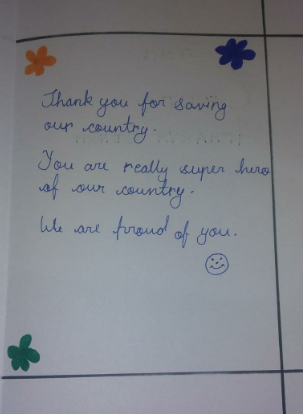 Thank you for saving
our country.
You are really super hero
of our country.
We are proud of you.